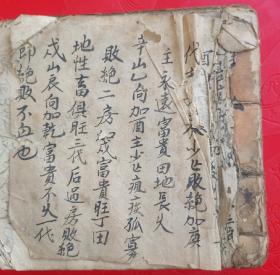 代少亡敗絕加庚
酉
主永遠富貴田地長久
辛山乙向加酉主少亡瘟疫孤寡
敗絕二房加戌富貴旺丁田
地牲畜俱旺三代后過房敗絕
戌山辰向加乾富貴不久一代
即絕敗不血也